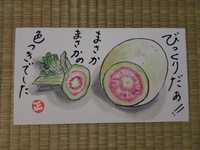 びっくりだぁ!!
まさか
まさかの
色つきでした
正